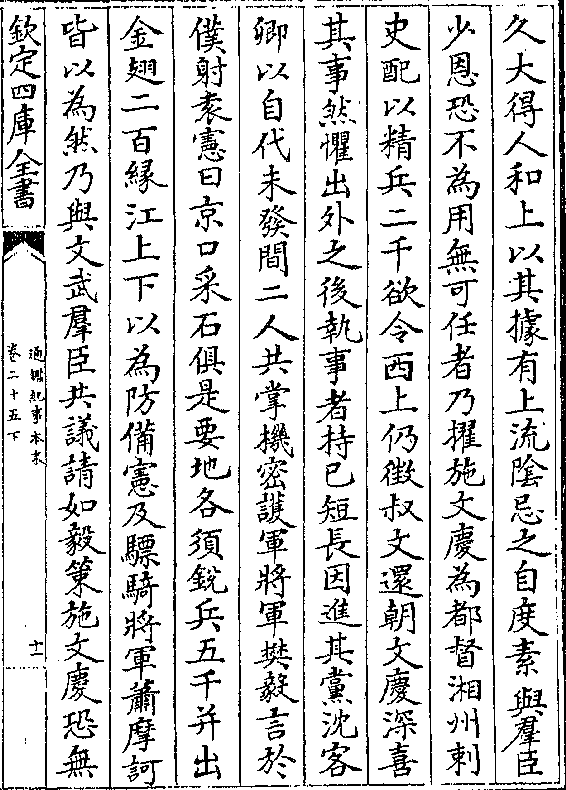 久大得人和上以其據有上流陰忌之自度素與羣臣
少恩恐不為用無可任者乃擢施文慶為都督湘州刺
史配以精兵二千欲令西上仍徴叔文還朝文慶深喜
其事然懼出外之後執事者持已短長因進其黨沈客
卿以自代未發間二人共掌機密䕶軍將軍樊毅言於
僕射袁憲曰京口采石俱是要地各須鋭兵五千并出
金翅二百緣江上下以為防備憲及驃騎將軍蕭摩訶
皆以為然乃與文武羣臣共議請如毅策施文慶恐無
欽定四庫全書
通鑑紀事本末
卷二十五下
十一